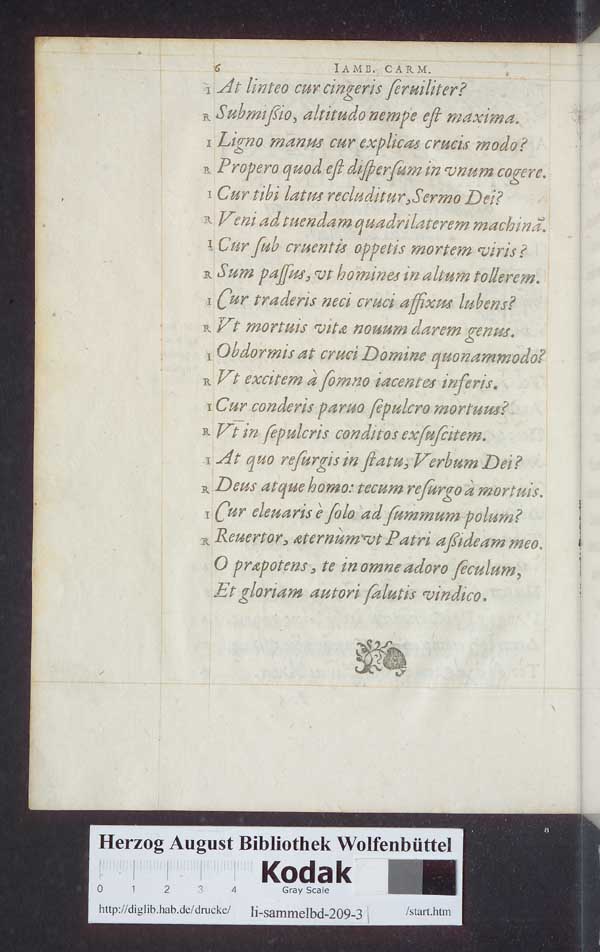 6 IAMB. CARM.
I At linteo cur cingeris ſeruiliter?
R Submiſsio, altitudo nempe eſt maxima.
I Ligno manus cur explicas crucis modo?
R Propero quod eſt diſperſum in vnum cogere.
I Cur tibi latus recluditur, Sermo Dei?
R Veni ad tuendam quadrilaterem machinã.
I Cur ſub cruentis oppetis mortem viris?
R Sum paſſus, vt homines in altum tollerem.
I Cur traderis neci cruci affixus lubens?
R Vt mortuis vitæ nouum darem genus.
I Obdormis at cruci Domine quonammodo?
R Vt excitem à ſomno iacentes inferis.
I Cur conderis paruo ſepulcro mortuus?
R Vt in ſepulcris conditos exſuſcitem.
I At quo reſurgis in ſtatu, Verbum Dei?
R Deus atque homo: tecum reſurgo à mortuis.
I Cur eleuaris è ſolo ad ſummum polum?
R Reuertor, æternùm vt Patri aßideam meo.
O præpotens, te in omne adoro ſeculum,
Et gloriam autori ſalutis vindico.
Herzog August Bibliothek Wolfenbüttel
0 1 2 3 4
Kodak
Gray Scale
http://diglib.hab.de/drucke/ li-sammelbd-209-3 /start.htm